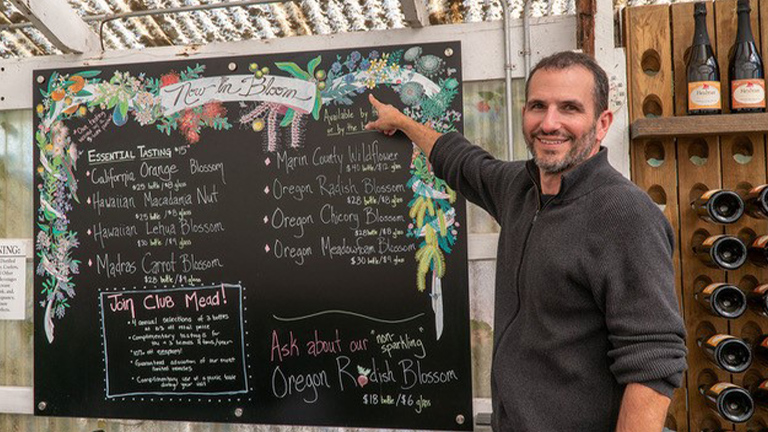 Now In Bloom
Available by
or by the
Essential Tasting $15
California Orange Blossom
$25 bottle/$8 glass
Hawaiian Macadamia Nut
$25 bottle/$8 glass
Hawaiian Lehua Blossom
$30 bottle/$9 glass
Madras Carrot Blossom
$28 bottle/$8 glass
Marin County Wildflower
$40 bottle/ glass
Oregon Radish Blossom
$28 bottle/$8 glass
Oregon Chicory Blossom
$28 bottle/$8 glass
Oregon Meadowfoam Blossom
$30 bottle/$9 glass
Join Club Mead!
4 annual selections of 3 bottles
at 10% off retail price
Complimentary tasting is for
you + 3 friends
10% off
Guaranteed allocation of our most
limited releases
Complimentary use of a picnic table
during your visit
Ask about our "non-
sparkling"
Oregon Radish Blossom
$18 bottle/$6 glass
WARNING